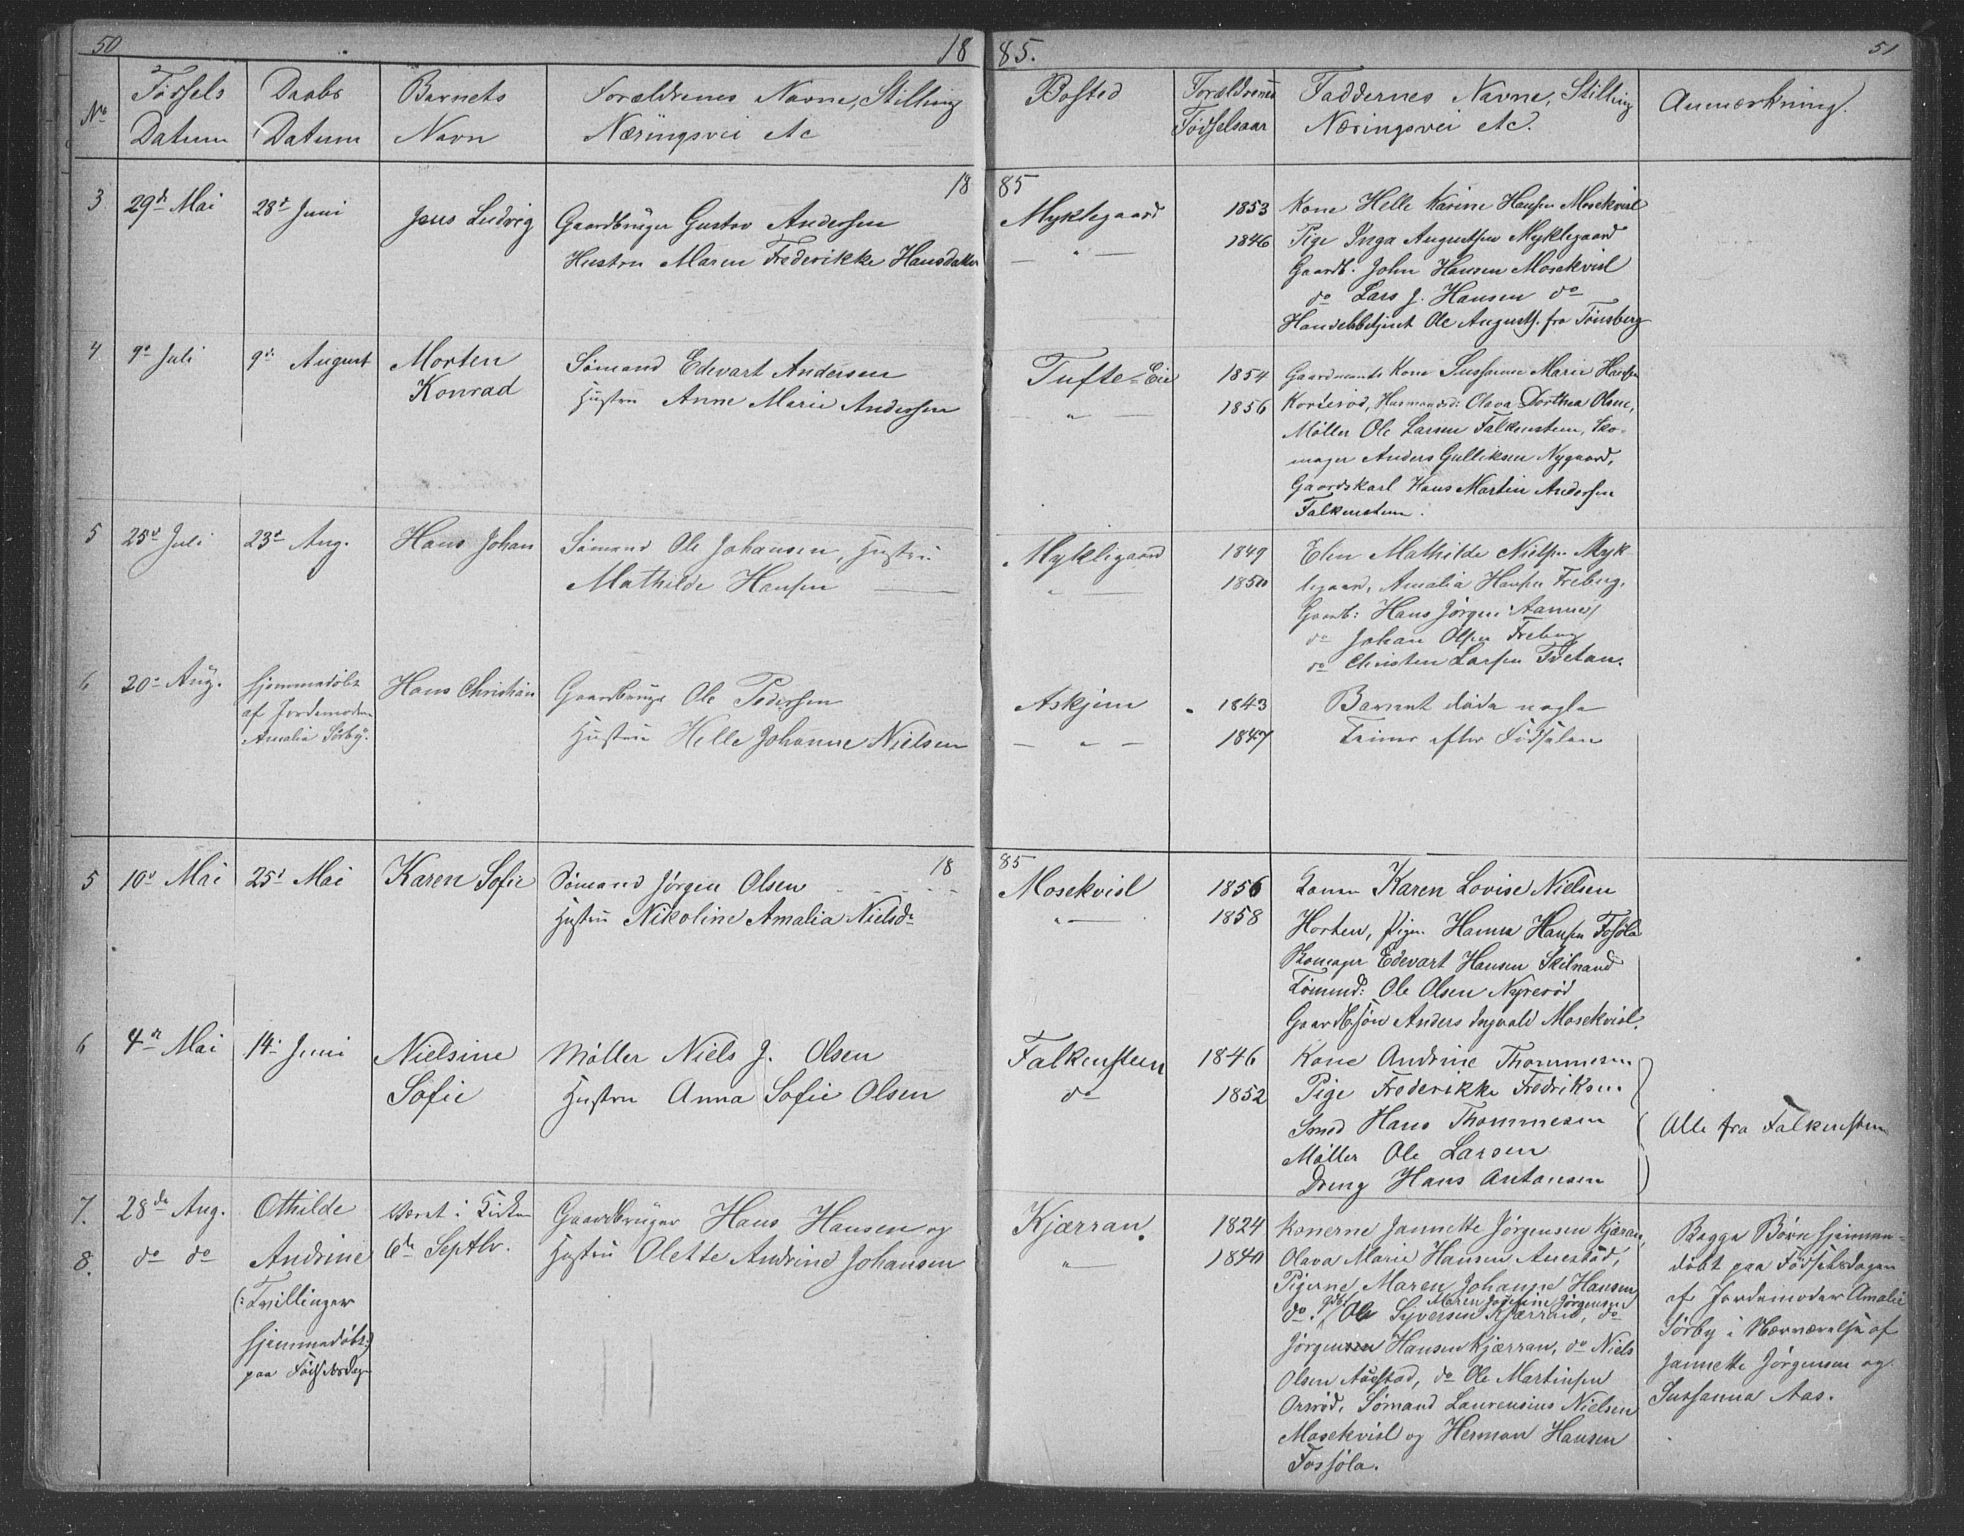 50
1885.
51
No
Fødsels Datum
Daabs Datum
Barnets Navn
Forældrenes Navne, Stilling Næringsvei etc
Bosted
Forældrenes Fødselsaar
Faddernes Navne, Stilling Næringsvei etc.
Anmærkning.
1885
3 29de Mai 28de Juni Jens Ludvig
Gaardbruger Gustav Andersen
Hustru Maren Frederikke Hansdatter
Myklegaard 1853
— " — 1846
Kone Helle Karine Hansen Mosekvisl
Pige Inga Augustsen Myklegaard
Gaardb. John Hansen Mosekvisl
do Lars J. Hansen do
Handelsbetjent Ole Augusts. fra Tønsberg
4 9de Juli 9de August Morten
Konrad
Sømand Edevart Andersen
Hustru Anne Marie Andersen
Tufte-Eie 1854
— " — 1856
Gaardmands Kone Sussanne Marie Hansen
Korterød, Husmandsd: Olava Dorthea Olsen,
Møller Ole Larsen Falkensteen, Sko-
mager Anders Gulliksen Nygaard,
Gaardskarl Hans Martin Andersen
Falkensteen.
5 25de Juli 23de Aug. Hans Johan
Sømand Ole Johansen, Hustru
Mathilde Hansen —
Myklegaard 1849
" — 1850
Elen Mathilde Nielsen Myk
legaard, Amalia Hansen Freberg.
Gaardb: Hans Jørgen Aannes,
do Johan Olsen Freberg
do Christen Larsen Tvetan.
6 20de Aug. Hjemmedøbt
af Jordemoder
Amalia Sørby.
Hans Christian
Gaardbruger Ole Pedersen
Hustru Helle Johanne Nielsen
Askjem 1843
— " — 1847
Barnet døde nogle
Timer efter Fødselen
1885
5 10de Mai 25de Mai Karen Sofie
Sømand Jørgen Olsen
Hustru Nikoline Amalia Nielsdr
Mosekvisl 1856
" — 1858
Konen Karen Lovise Nielsen
Horten, Pigen Hanna Hansen Fossøla
Skomager Edevart Hansen Skilnand
Tømmd: Ole Olsen Nyrerød
Gaardbsøn Anders Ingvald Mosekvisl.
6 4de Mai 14de Juni Nielsine
Sofie
Møller Niels J. Olsen
Hustru Anna Sofie Olsen
Falkensteen 1846
do 1852
Kone Andrine Thommesen
Pige Frederikke Fredriksen
Smed Hans Thommesen
Møller Ole Larsen
Dreng Hans Antonsen
Alle fra Falkensteen
7. 28de Aug. Othilde
8. do do Andrine
(: Tvillinger
hjemmedøbt :)
paa Fødselsdagen
Været i Kirken
6te Septbr.
Gaardbruger Hans Hansen og
Hustru Olette Andrine Johansen
Kjærran. 1824
" — 1840
Konerne Jannette Jørgensen Kjæran,
Olava Marie Hansen Auestad,
Pigerne Maren Johanne Hansen
Maren Josefine Jørgensen
do. Gdbr. Ole Syversen Kjærran, do
Jørgen Hansen Kjærran, do Niels
Olsen Augstad, do Ole Martinsen
Orerød, Sømand Laurensius Nielsen
Mosekvisl og Herman Hansen
Fossøla.
Begge Børn hjemme-
døbt paa Fødselsdagen
af Jordemoder Amalie
Sørby i Nærværelse af
Jannette Jørgensen og
Sussanna Aas.